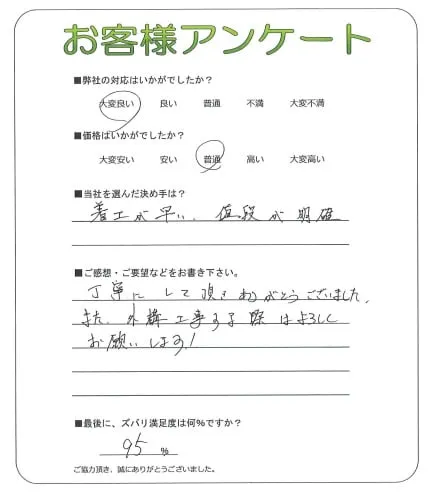 お客様アンケート
■弊社の対応はいかがでしたか?
大変良い 良い 普通 不満 大変不満
■価格はいかがでしたか?
大変安い 安い 普通 高い 大変高い
■当社を選んだ決め手は?
着工が早い、値段が明確
■ご感想・ご要望などをお書き下さい。
丁寧にして頂きありがとうございました。
また、外構工事する際はよろしく
お願いします!
■最後に、ズバリ満足度は何%ですか?
95 %
ご協力頂き、誠にありがとうございました。